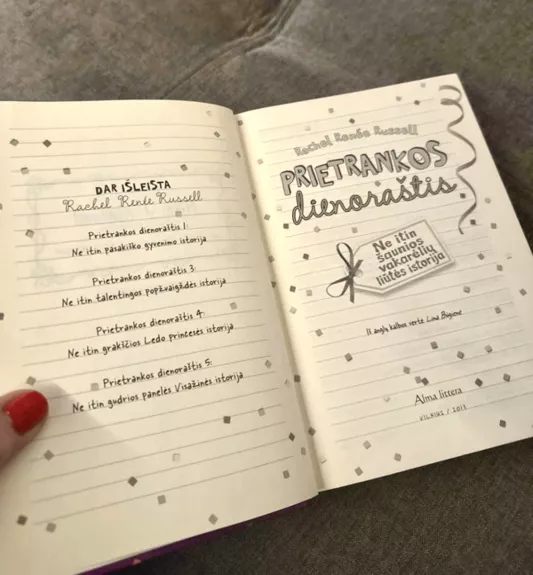 DAR IŠLEISTA
Rachel Renée Russell
Prietrankos dienoraštis 1:
Ne itin pasakiško gyvenimo istorija
Prietrankos dienoraštis 3:
Ne itin talentingos popžvaigždės istorija
Prietrankos dienoraštis 4:
Ne itin grakščios Ledo princesės istorija
Prietrankos dienoraštis 5:
Ne itin gudrios panelės Visažinės istorija
Rachel Renée Russell
PRIETRANKOS
dienoraštis
Ne itin
šaunios
vakarėlių
liūtės istorija
Iš anglų kalbos vertė Lina Bugienė
Alma littera
VILNIUS / 2013